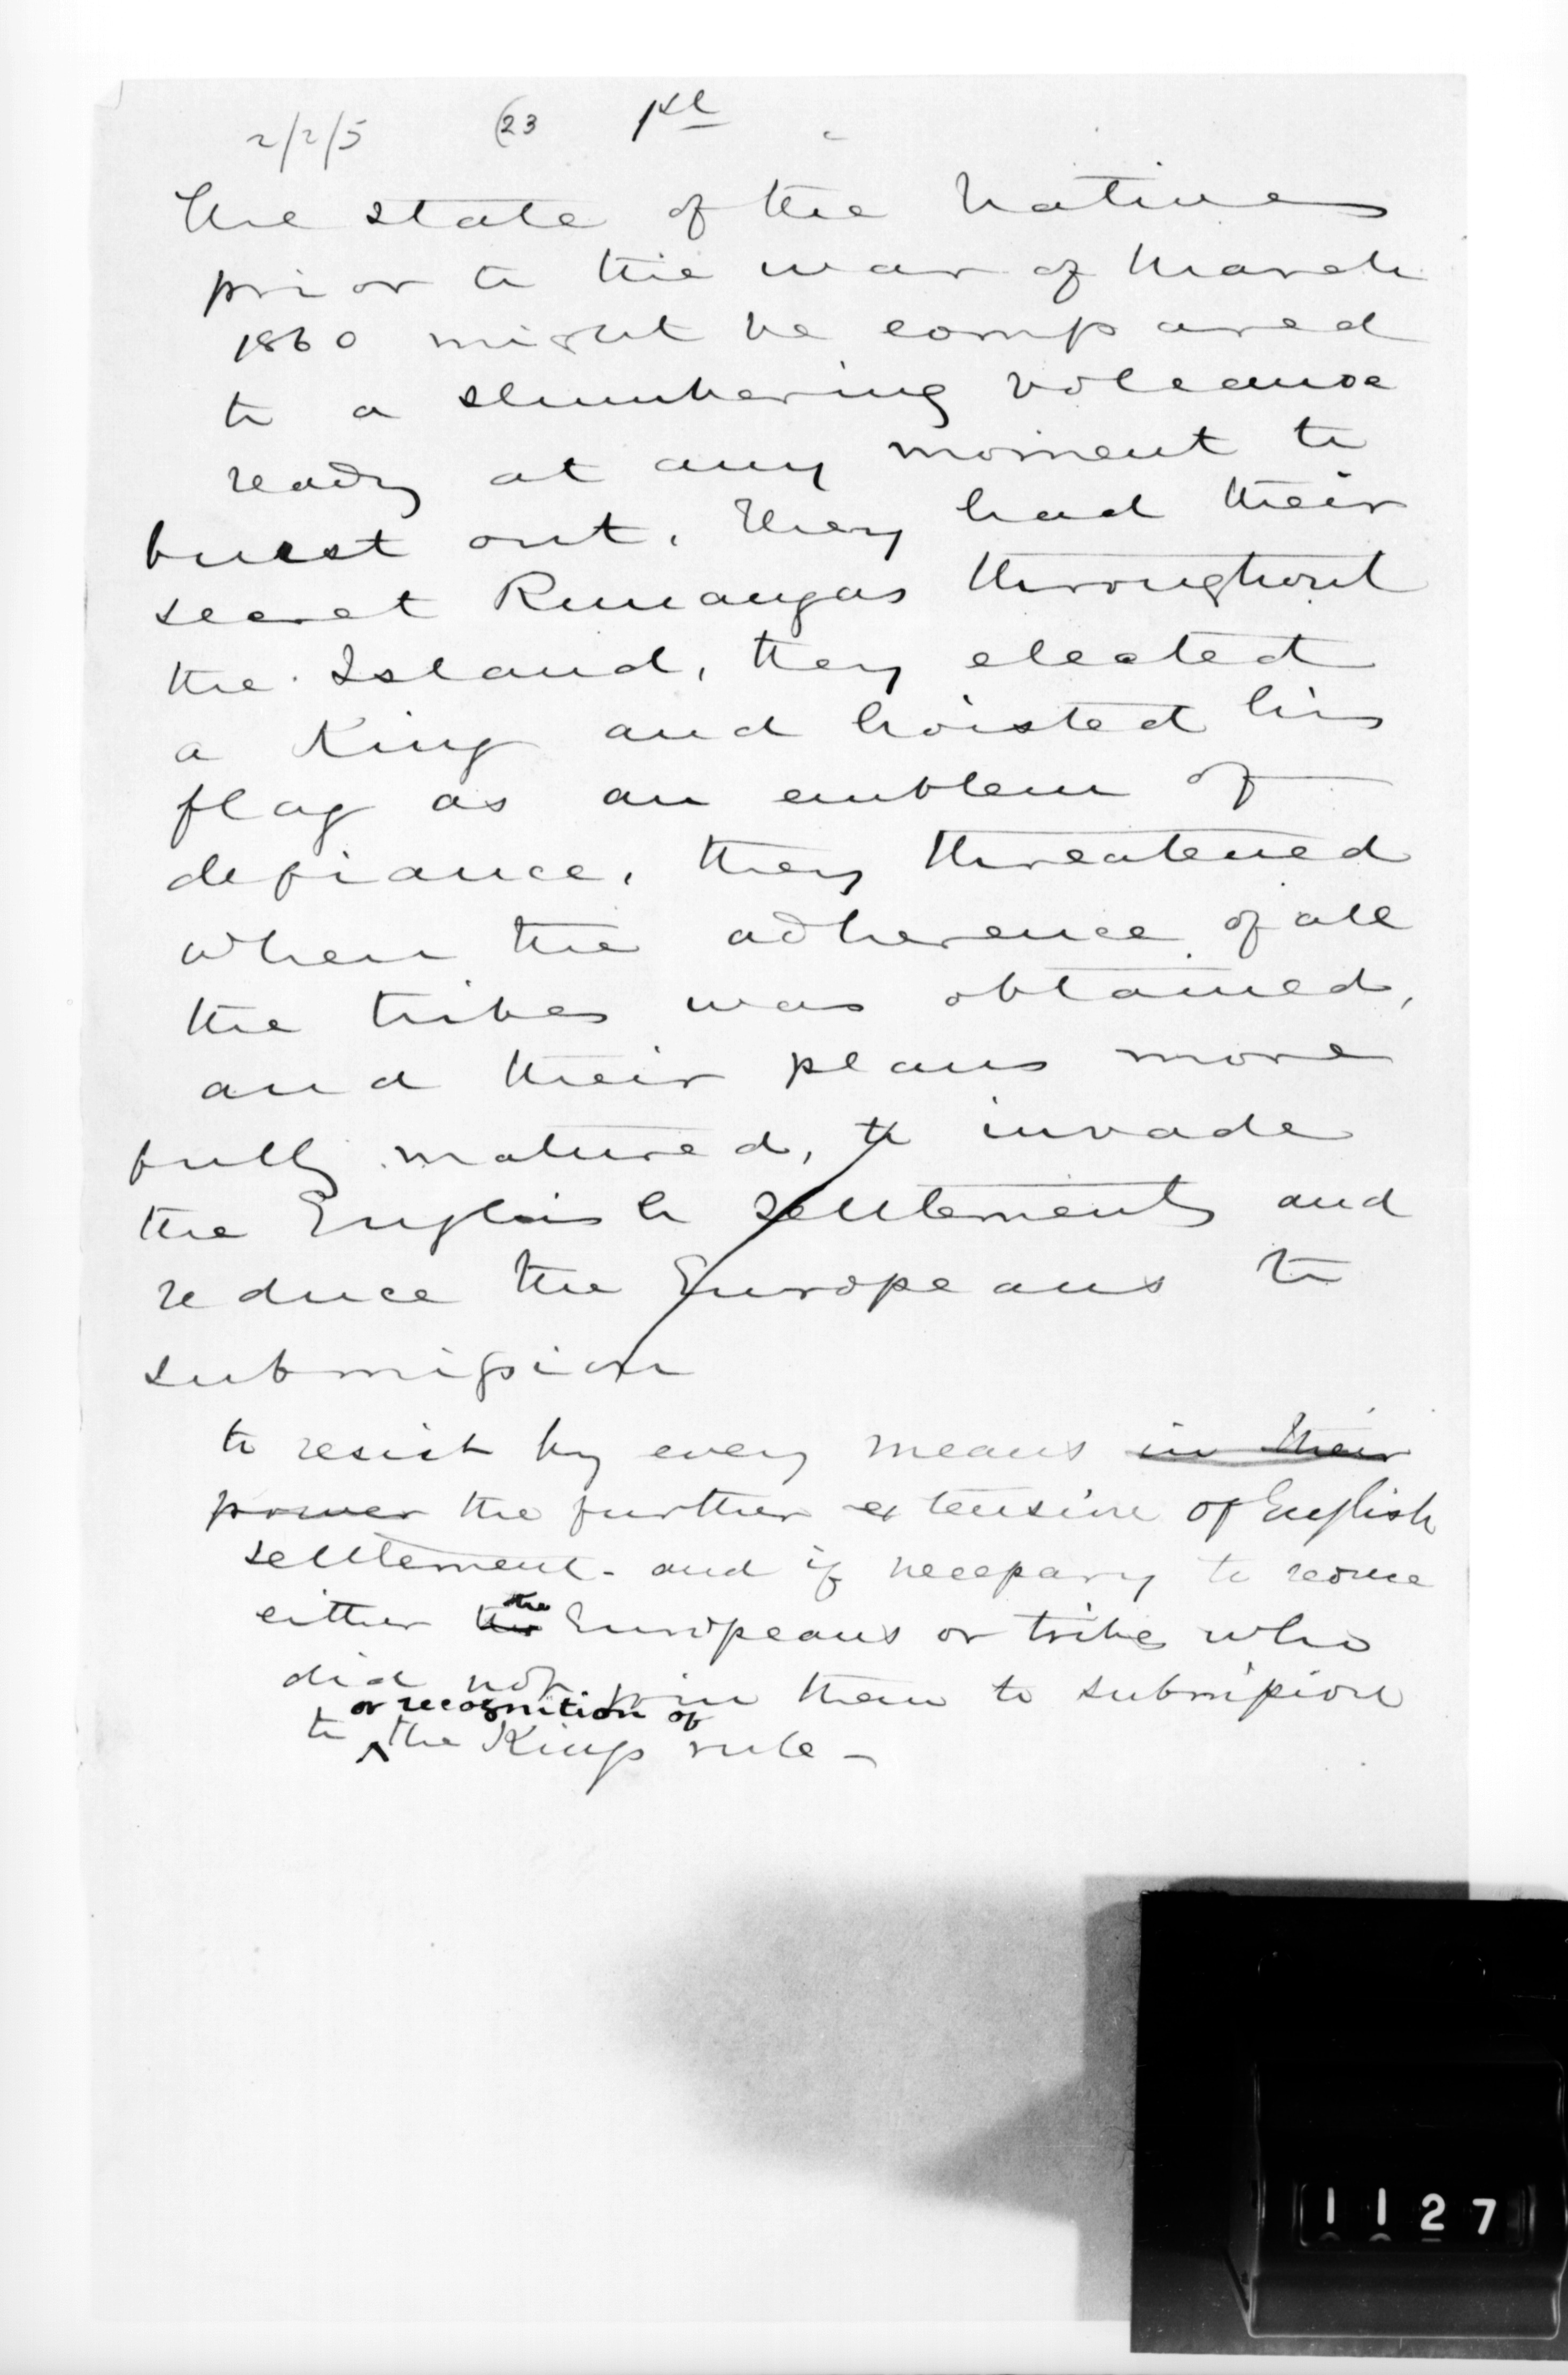 2/2/5 (23
The state of the Natives
prior to the war of March
1860 might be compared
to a slumbering volcanoe
ready at any moment to
burst out. They had their
secret Runangas throughout
the Island, they elected
a King and hoisted his
flag as an emblem of
defiance, they threatened
when the adherence of all
the tribes was obtained,
and their plans more
fully matured, to invade
the English settlements and
reduce the Europeans to
submission
to resist by every means in their
power the further extension of English
settlement - and if necessary to
either the the Europeans or tribes who
did not join them to submission
or recognition of
to ^ the Kings rule -
1127